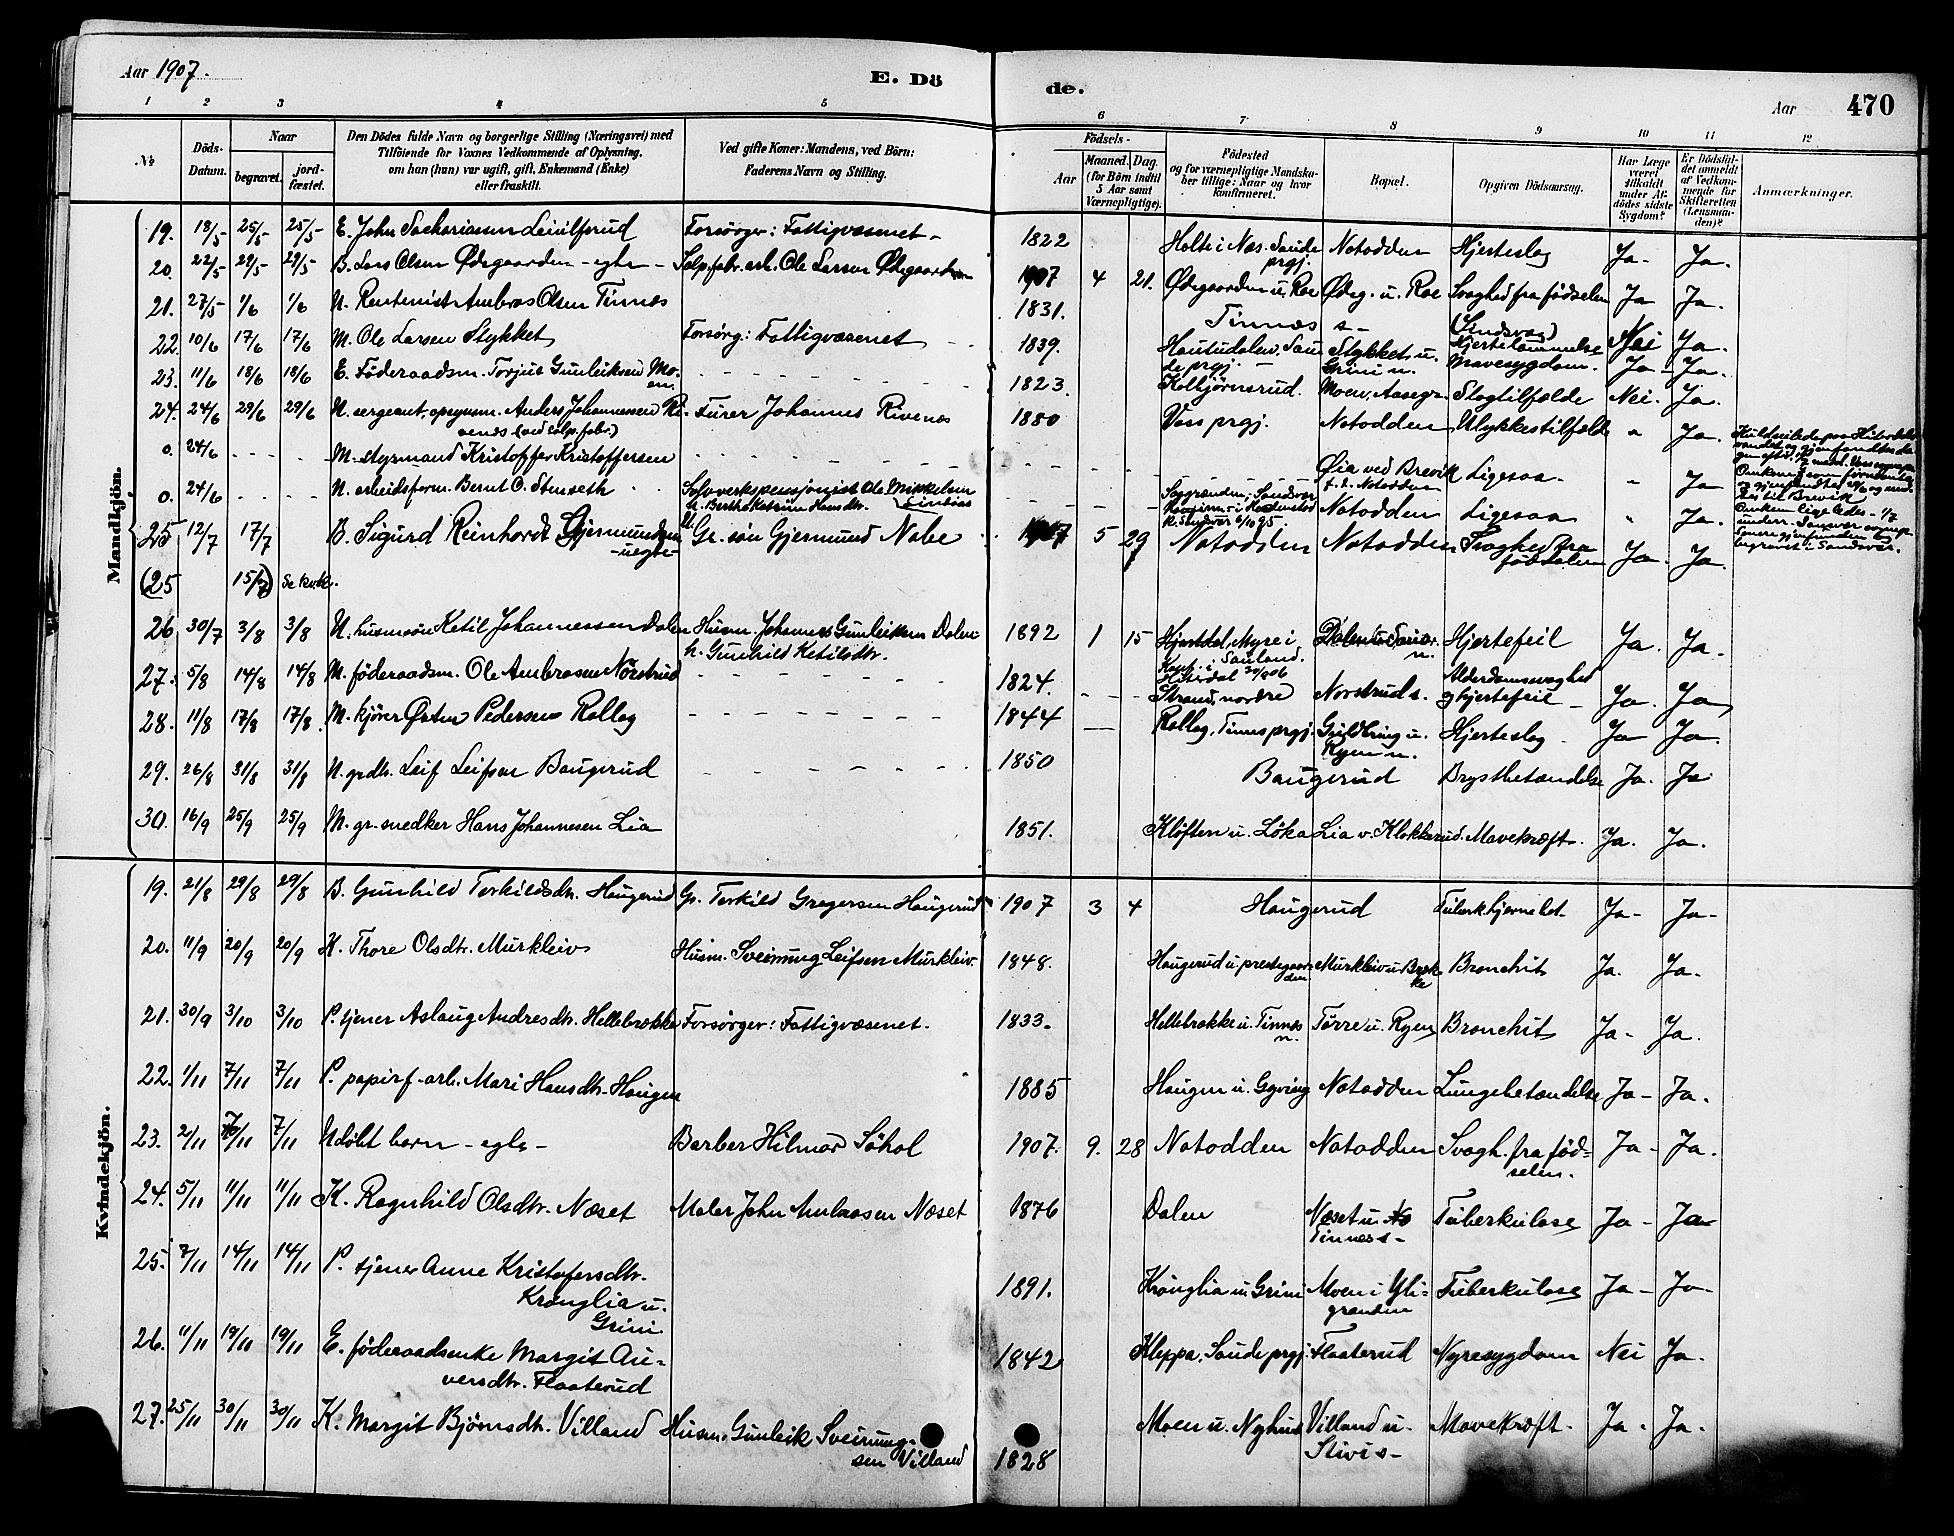 Aar 1907.
E. Dö
de.
Aar
470
1 2 3 4 5 6 7 8 9 10 11 12
No
Döds-Datum.
Naar
begravet.
jord-fæstet.
Den Dödes fulde Navn og borgerlige Stilling (Næringsvei) med
Tilföiende for Voxnes Vedkommende af Oplysning.
om han (hun) var ugift, gift, Enkemand (Enke)
eller fraskilt.
Ved gifte Koner: Mandens, ved Börn:
Faderens Navn og Stilling.
Födsels-
Aar
Maaned. Dag.
(for Börn indtil
5 Aar samt
Værnepligtige).
Födested
og for værnepligtige Mandska-
ber tillige: Naar og hvor
konfirmeret.
Bopæl.
Opgiven Dödsaarsag.
Har Læge
været
tilkaldt
under Af-
dödes sidste
Sygdom?
Er Dödsfal-
det anmeldt
af Vedkom-
mende for
Skifteretten
(Lensman-
den)?
Anmærkninger.
Mandkjön.
19. 18/5 25/5 25/5 E. John Sachariassen Forsörger: Fattigvæsenet - 1822 Holte i Næs. Saude prgj. Notodden Hjerteslag Ja- Ja.
20. 22/5 29/5 29/5 B. Lars Olsen Ødegaarden - egte - Ole Larsen Ødegaarden 1907 4 21. Ødegaarden u. Roe Ødeg. u. Roe Svaghed fra födselen Ja Ja.
21. 27/5 1/6 1/6 U. Rentenist Ambros Olsen Tinnæs 1831. Tinnæs s- (Sindsvag) Hjertelammelse Nei Ja.
22. 10/6 17/6 17/6 M. Ole Larsen Stykket Forsörg: Fattigvæsenet 1839. Saude prgj. Stykket u. Grini n. Mavesygdom. Ja- Ja.
23. 11/6 18/6 18/6 E. Föderaadsm. Torjus Gunleiksen Moen 1823. Kolbjörnsrud. Moen, Slagtilfælde Nei. Ja.
24. 24/6 29/6 29/6 U. sergeant, opsynsm. Anders Johannessen Rivenæs (ved salp. fabr.) Furer Johannes Rivenæs 1880 Voss prgj. Notodden Ulykkestilfælde " Ja.
0. 24/6 - - M. styrmand Kristoffer Kristoffersen Øia ved Brevik t. l. Notodden Ligesaa. " Ja
0. 24/6 - - U. arbeidsform. Bernt O. Stenseth Sölvverkspensjonist Ole Mikkelsen Notodden Ligesaa " Ja.
25 12/7 17/7 B. Sigurd Reinhardt Gjermundsen -uegte- Gr. sön Gjermund Nabe 1907 5 29 Notodden Notodden Svaghed fra födselen Ja. Ja.
(25 15/7) Se kvk.
26 30/7 3/8 3/8 U. husmsön Ketil Johannessen Dalen Husm. Johannes Gunleiksen Dalen h. Gunhild Ketilsdtr. 1892 1 15 Hjartdal, Myre i Sauland. Konf. i Hitterdal Hjertefeil Ja. Ja.
27. 5/8 14/8 14/8 M. föderaadsm. Ole Ambrosen Nörstrud 1824. Strand, nordre Norstrud s. Alderdomssvaghed og hjertefeil Ja. Ja
28. 11/8 17/8 17/8. M. kjörer Østen Pedersen Rollag 1844 Rollag, Tinns prgj. Guldbring u. Ryen n. Hjerteslag Ja Ja.
29. 26/8 31/8 31/8 U. grdbr. Leif Leifsen Baugerud 1850 Baugerud Brystbetændelse Ja. Ja
30. 16/9 25/9 25/9 M. gr. snedker Hans Johannesen Lia 1851. Klöften u. Löka Lia v. Klokkerud. Mavekræft. Ja. Ja.
Kvindekjön.
19. 21/8 29/8 29/8 B. Gunhild Terkildsdtr. Haugerud Gr. Terkild Gregersen Haugerud 1907 3 4 Haugerud Tuberk. hjernebet. Ja- Ja-
20. 11/9 20/9 20/9 K. Thore Olsdtr. Murkleiv Husm. Sveinung Leifsen Murkleiv. 1848. Haugerud u. prestegaarden Murkleiv u. Bakke Bronchit Ja. Ja.
21. 30/9 3/10 3/10 P. tjener Aslaug Andresdtr. Hellebrække Forsörger: Fattigvæsenet. 1833. Hellebrække u. Tinnæs n. Törre u. Ryen Bronchit Ja- Ja.
22. 1/11 7/11 7/11 P. papirf. arb. Mari Hansdtr. Haugen 1885 Haugen u. Gyving Notodden Lungebetændelse Ja- Ja.
23. 2/11 7/11 7/11 Udöbt barn - egte - Barber Hilmar Söhol 1907. 9. 28 Notodden Notodden Svagh. fra födselen. Ja- Ja.
24. 5/11 11/11 11/11 K. Ragnhild Olsdtr. Næset Maler John Ambrosen Næset 1876 Dalen Næset u. Tinnæs s- Tuberkulose Ja- Ja
25. 7/11 14/11 14/11 P. tjener Anne Kristofersdtr. Kronglia u. Grini 1891. Kronglia u. Grini Moen i Yligranden Tuberkulose Ja- Ja-
26. 11/11 19/11 19/11 E. föderaadsenke Margit Auversdtr. Flaaterud 1842 Kleppa, Saude prgj. Flaaterud Nyresygdom Nei Ja.
27. 25/11 30/11 30/11 K. Margit Björnsdtr. Villand Husm. Gunleik Sveinungsen Villand 1828 Moen u. Nyhus Villand u. Sivi s- Mavekræft. Ja- Ja.